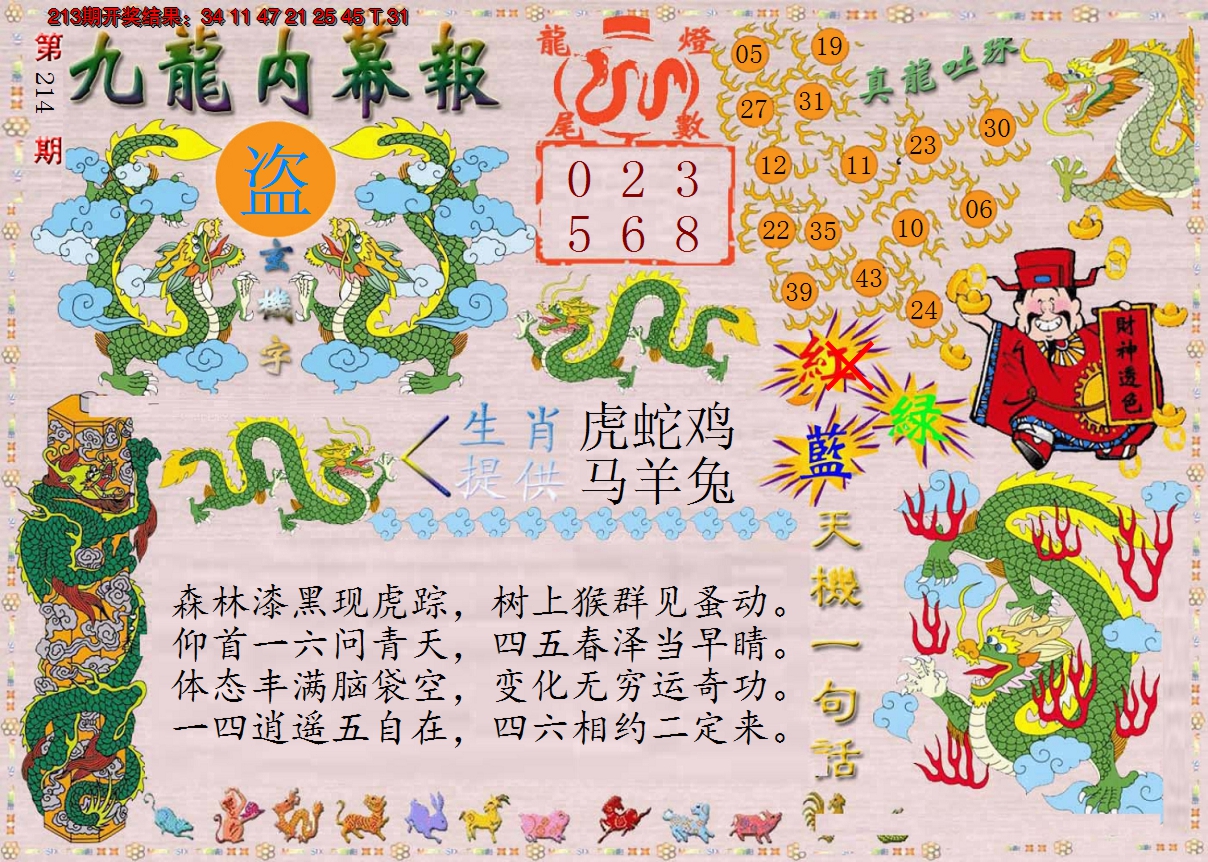 213期开奖结果：34 11 47 21 25 45 T 31
第214期
九龍内幕報
盗
玄機字
龍燈
尾數
0 2 3
5 6 8
真龍吐珠
05 19
27 31
12 11 23 30
22 35 10 06
39 43 24
財神透色
紅
綠
藍
生肖 虎蛇鸡
提供 马羊兔
天機一句話
森林漆黑现虎踪，树上猴群见蚤动。
仰首一六问青天，四五春泽当早晴。
体态丰满脑袋空，变化无穷运奇功。
一四逍遥五自在，四六相约二定来。